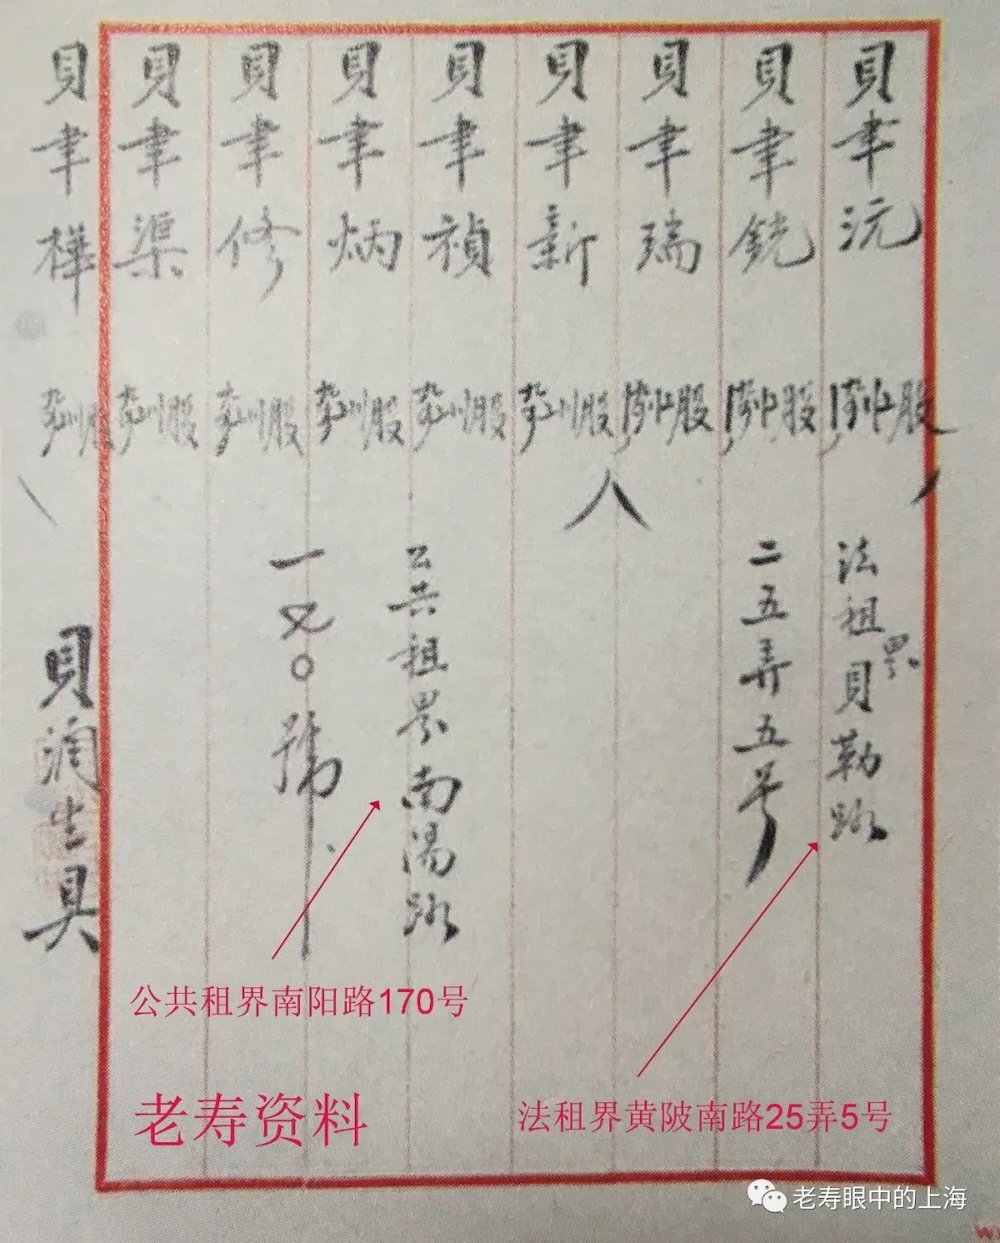 貝聿沅
貝聿銃
貝聿瑞
貝聿新
貝聿禎
貝聿炳
貝聿修
貝聿渠
貝聿樺
股
股
股
股
股
股
股
股
股
法租界貝勒路
二五弄五号
公共租界南陽路
一又〇號
貝潤生具
公共租界南阳路170号
法租界黄陂南路25弄5号
老寿资料
老寿眼中的上海